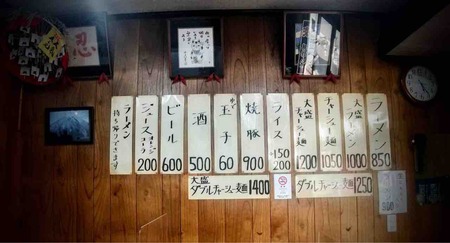 ラーメン 850
大盛ラーメン 1000
チャーシュー麺 1050
大盛チャーシュー麺 1200
ライス 150 200
焼豚 900
玉子 60
酒 500
ビール 600
ジュース コーラ 200
ラーメン 持ち帰りできます
ダブルチャーシュー麺 1250
大盛 ダブルチャーシュー麺 1400
忍